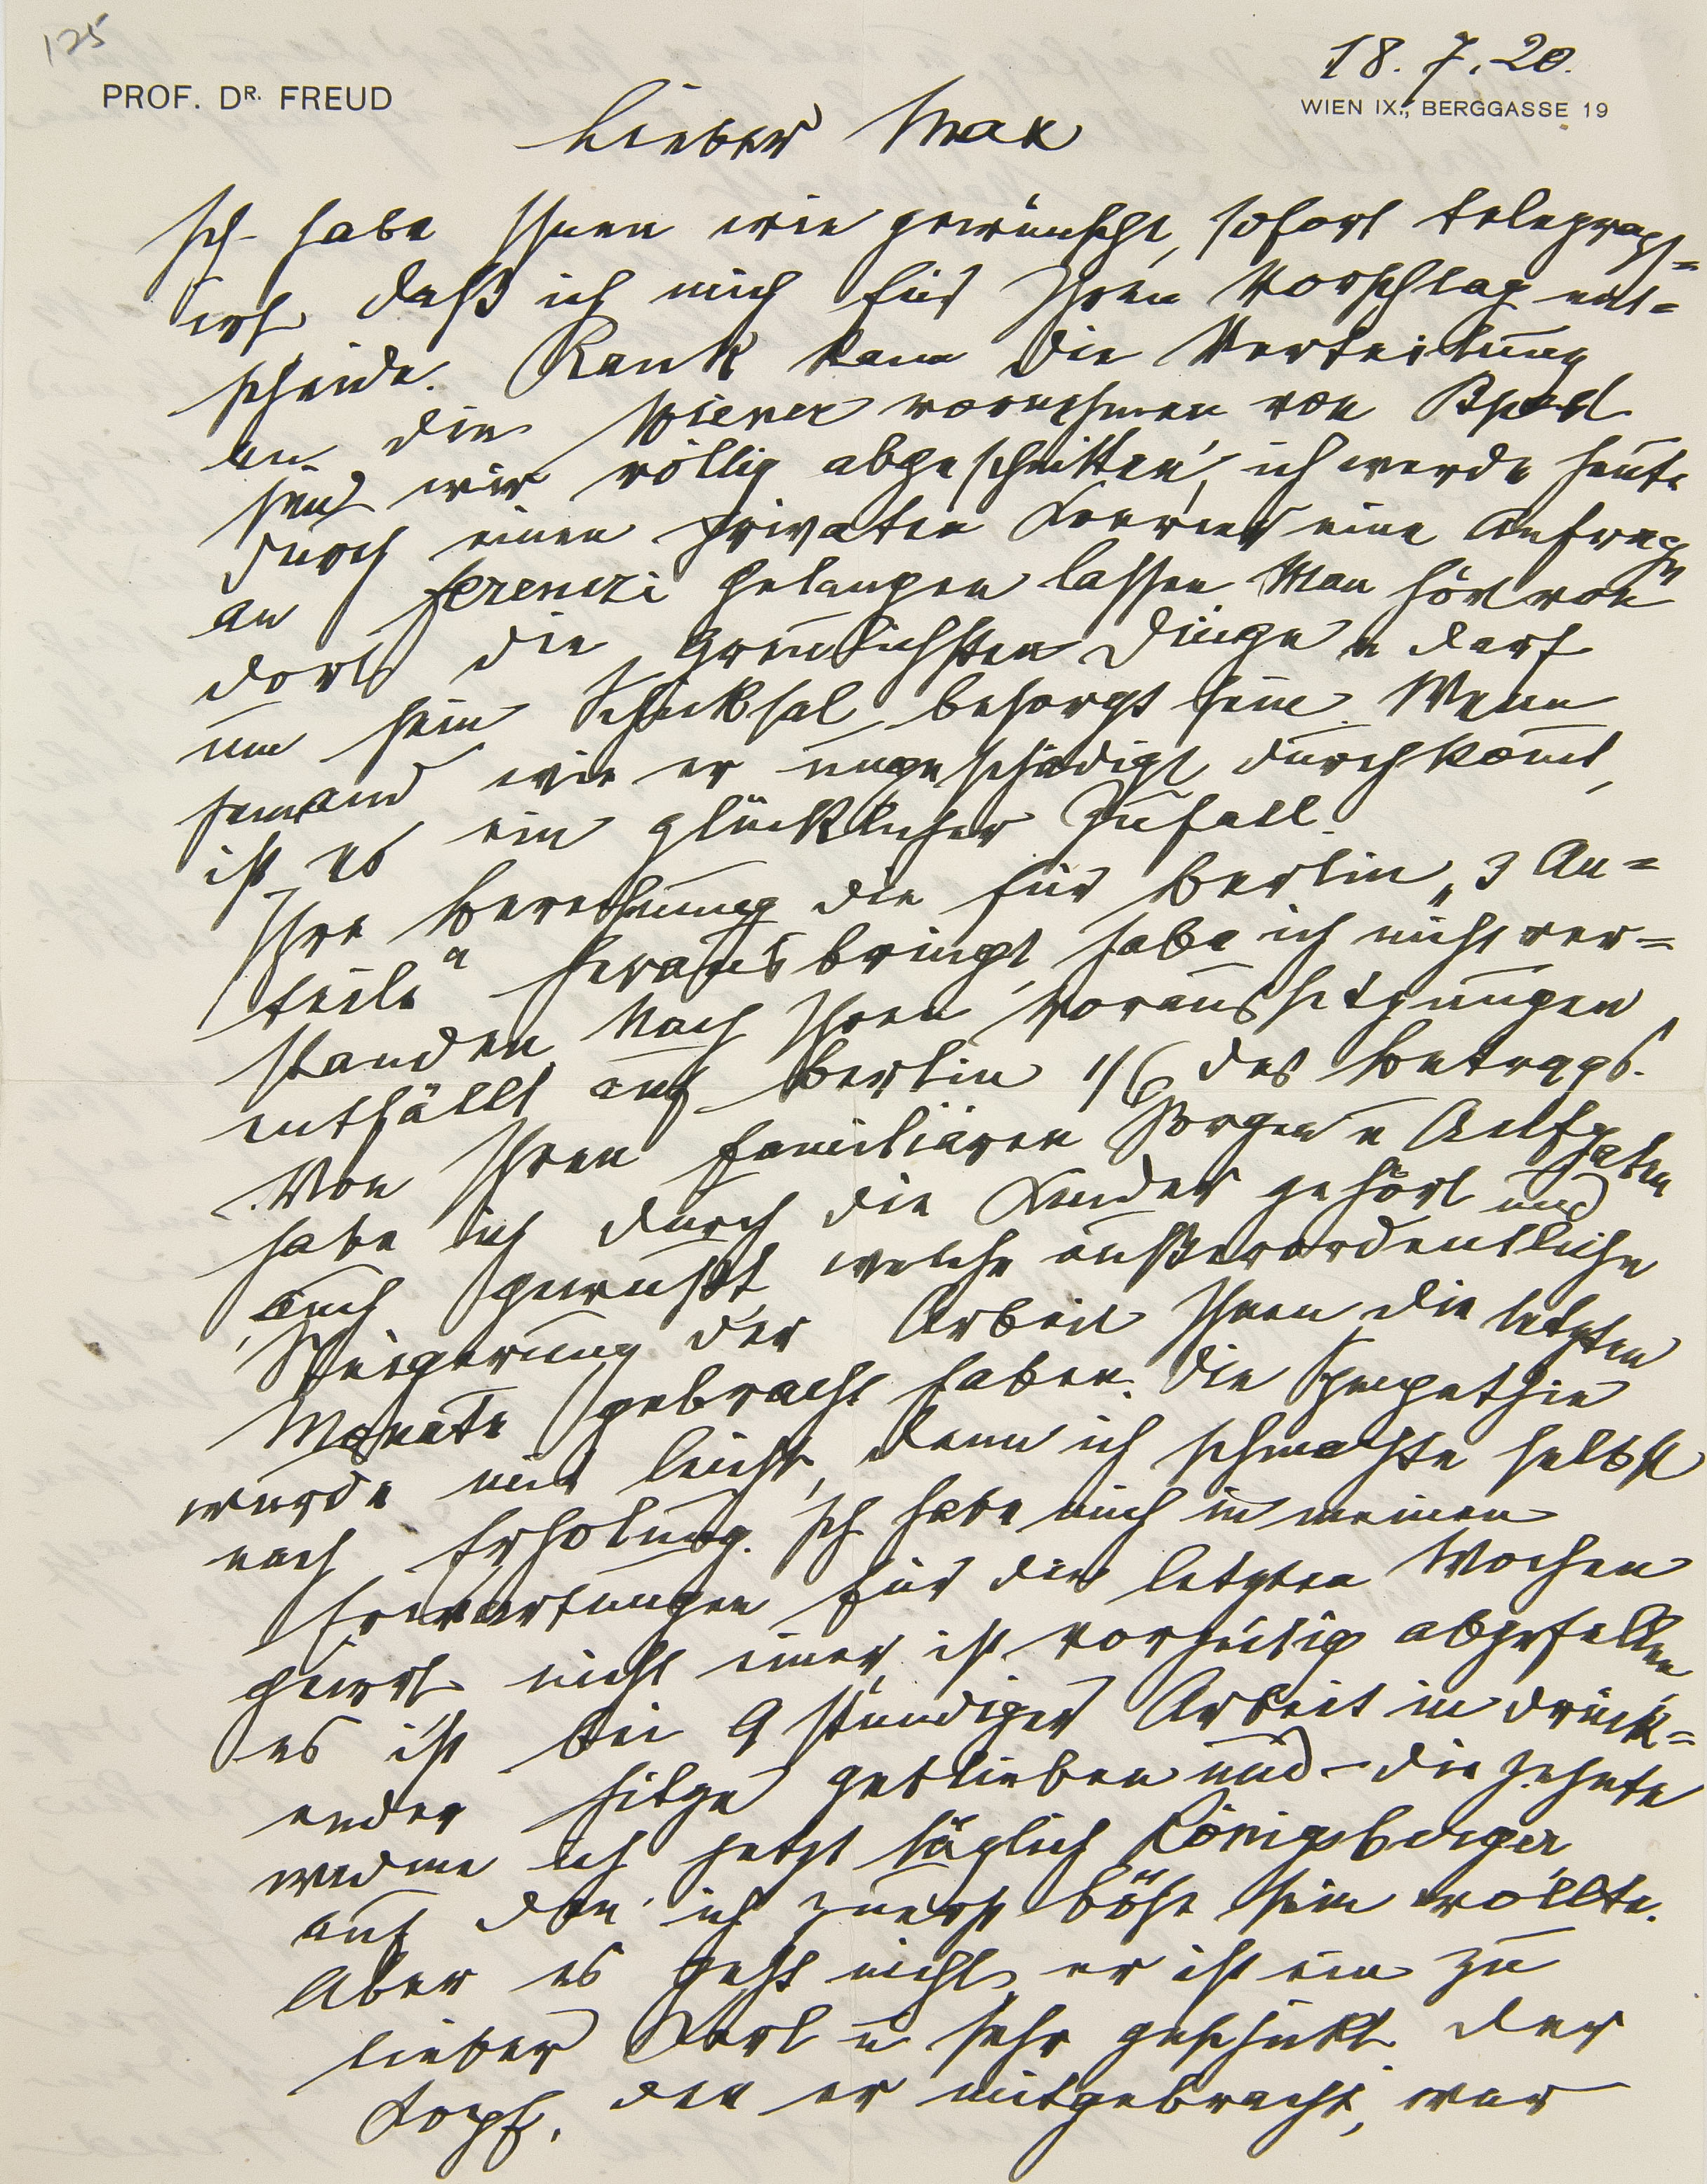 125
18. 7. 20.
PROF. DR. FREUD
WIEN IX., BERGGASSE 19
Lieber Max
Ich habe Ihnen wie gewünscht, sofort telegraph=
irt daß ich mich für Ihren Vorschlag ent=
scheide. Rank kann die Verteilung
an die Wiener vornehmen von Bpest
sind wir völlig abgeschnitten, ich werde heute
durch einen privaten Kurier eine Anfrage
an Ferenczi gelangen lassen Man hört von
dort die greulichsten Dinge u darf
um sein Schicksal besorgt sein. Wenn
jemand wie er ungeschädigt durchkomt,
ist es ein glücklicher Zufall.
Ihre Berechnung die für Berlin „3 An=
teile“ herausbringt, habe ich nicht ver=
standen Nach Ihren Voraussetzungen
entfällt auf Berlin 1/6 des Betrags.
Von Ihren familiären Sorgen u Aufgaben
habe ich durch die Kinder gehört und
auch gewußt, welche außerordentliche
Steigerung der Arbeit Ihnen die letzten
Monate gebracht haben. Die Sympathie
wurde mir leicht, denn ich schmachte selbst
nach Erholung. Ich habe mich in meinen
Erwartungen für die letzten Wochen
geirrt nicht einer ist vorzeitig abgefallen,
es ist bei 9 stündiger Arbeit in drück=
ender Hitze geblieben und – die zehnte
widme ich jetzt täglich Königsberger
auf den ich zuerst böse sein wollte.
Aber es geht nicht, er ist ein zu
lieber Kerl u sehr geschickt. Der
Kopf, den er mitgebracht, war